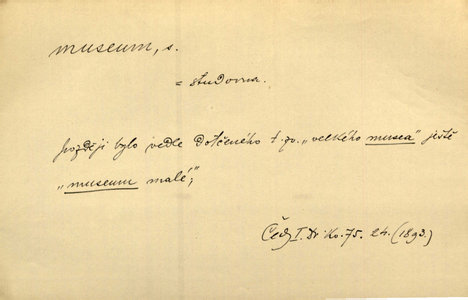 museum, s.
= studovna.
později bylo vedle dotčeného t. zv. „velkého musea" ještě
„museum malé";
75. 24. (1893.)